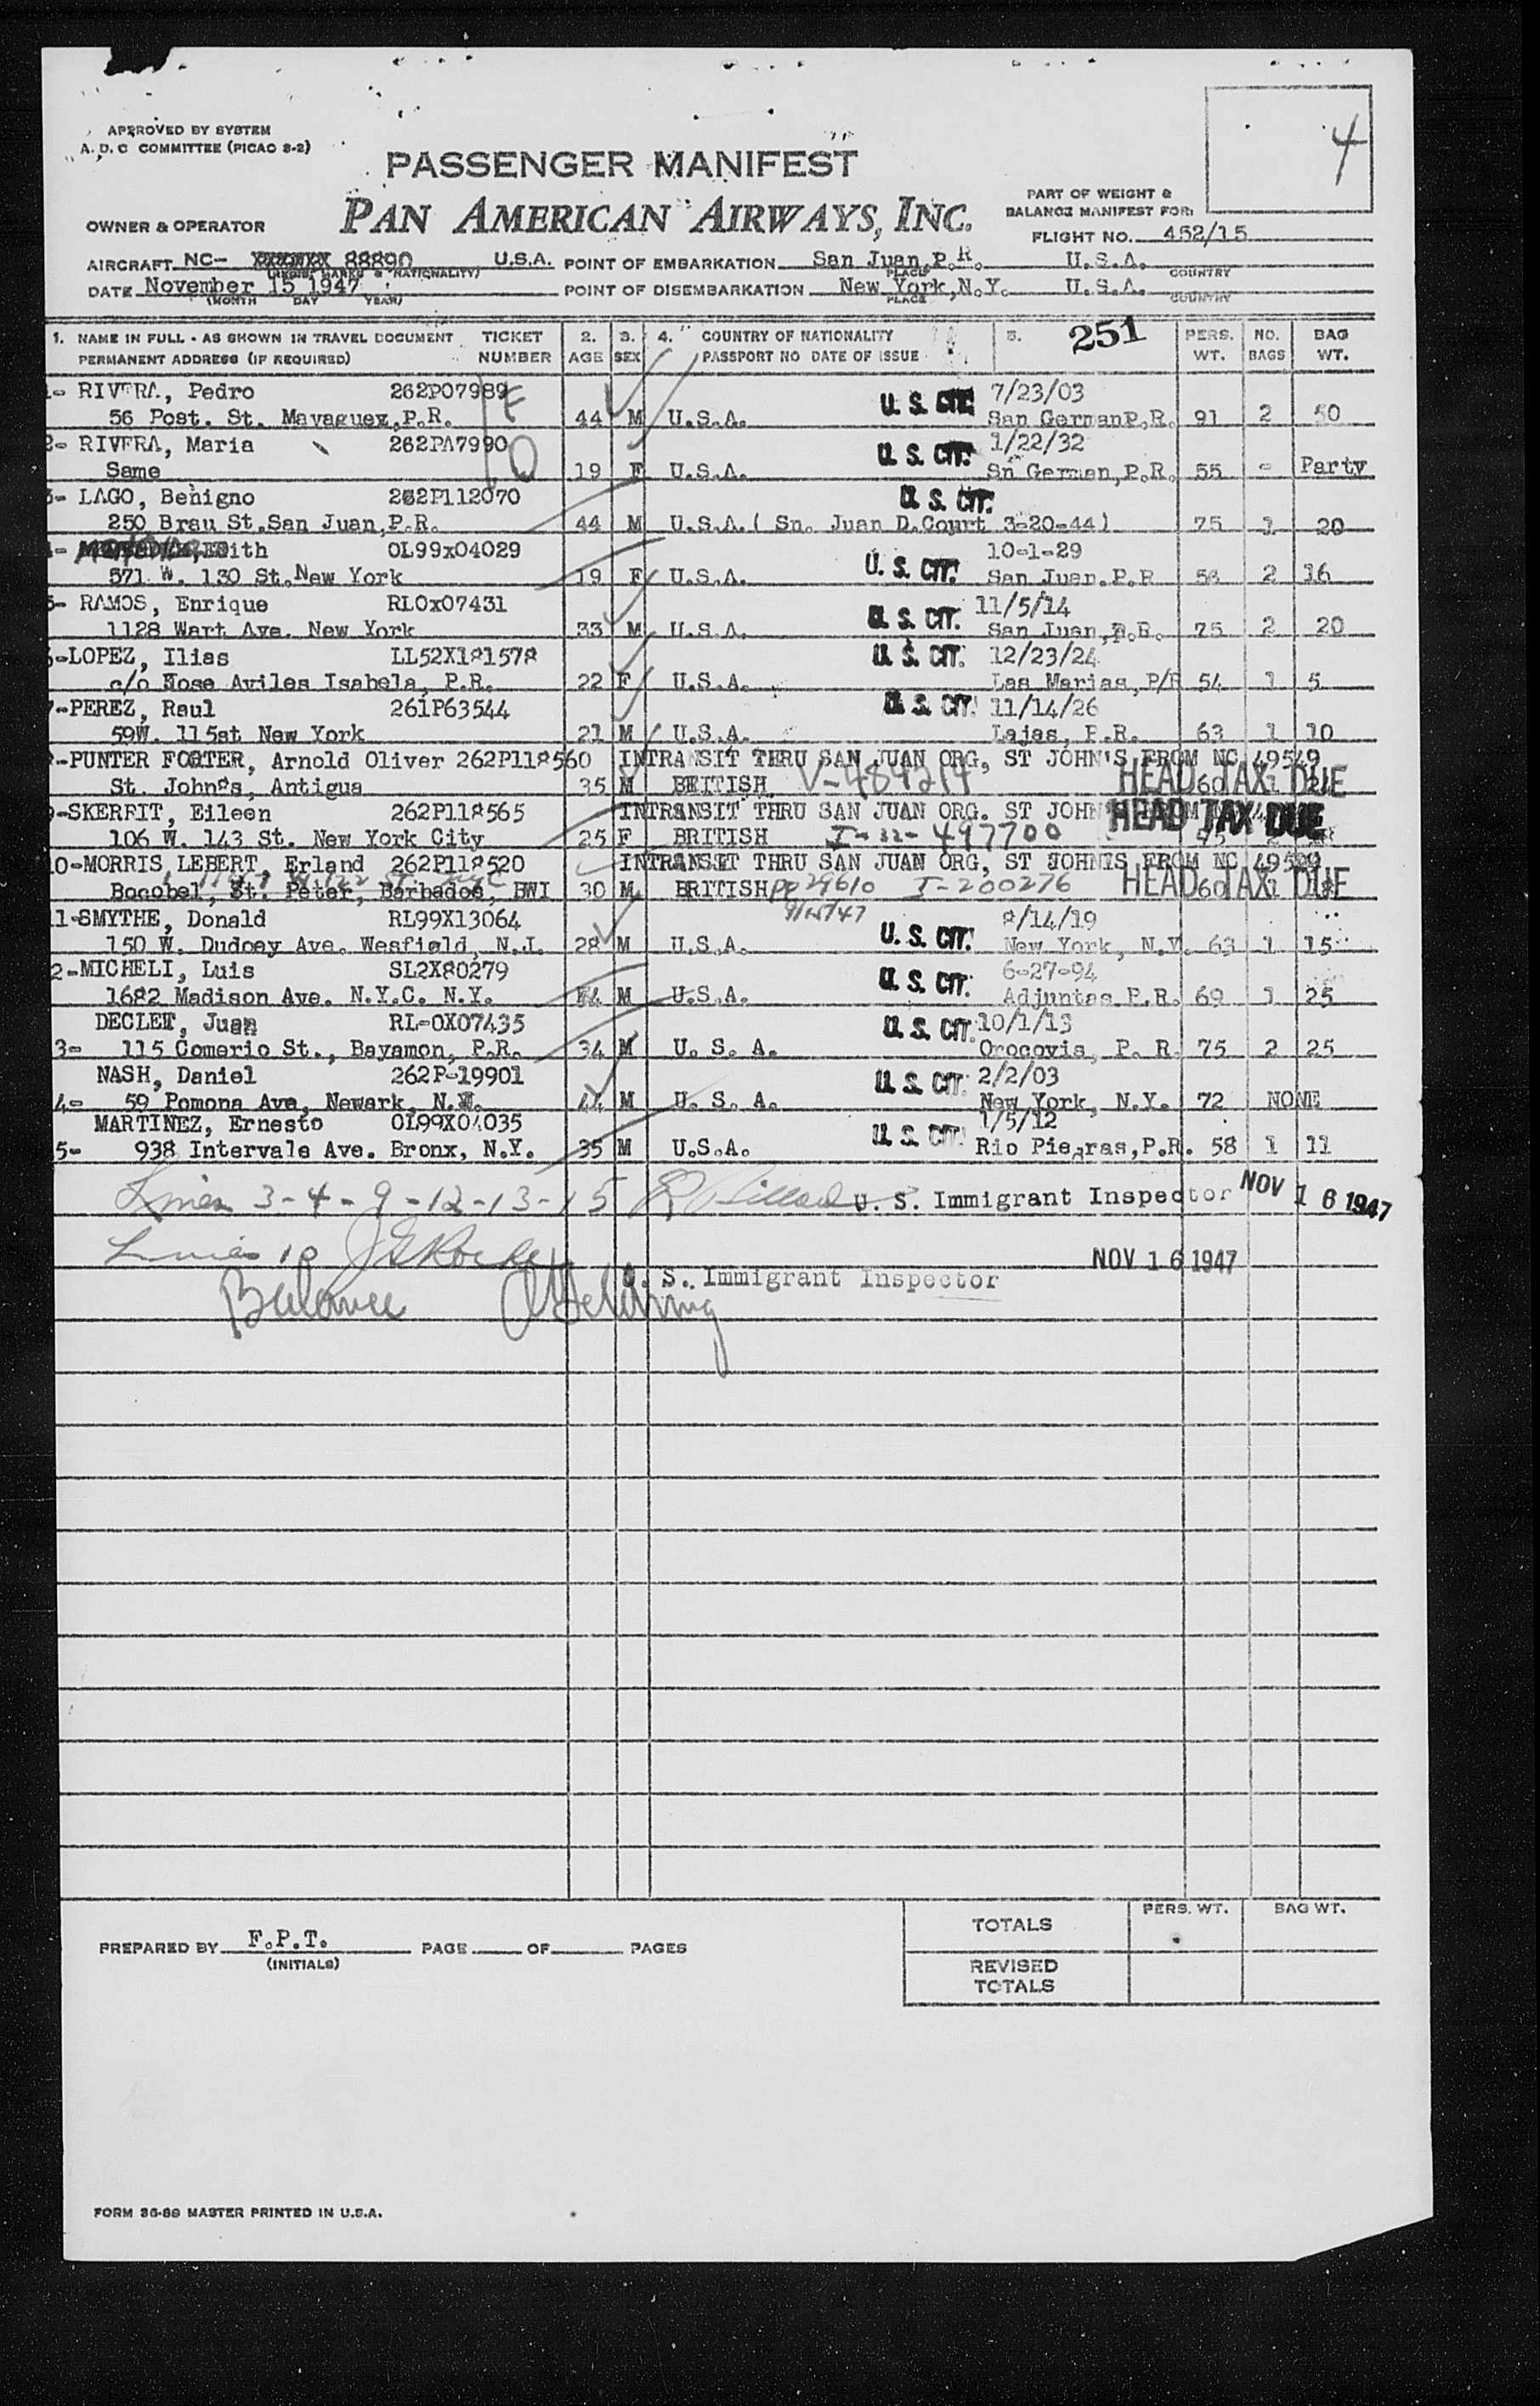 APPROVED BY SYSTEM
A. D. C COMMITTEE (PICAO 8-2)
4
PASSENGER MANIFEST
PAN AMERICAN AIRWAYS, INC.
PART OF WEIGHT &
BALANCE MANIFEST FOR:
OWNER & OPERATOR
FLIGHT NO. 452/15
AIRCRAFT NC- 88890 U.S.A. POINT OF EMBARKATION San Juan, P.R. U.S.A.
(REGIS. MARKS & NATIONALITY) PLACE COUNTRY
DATE November 15 1947 POINT OF DISEMBARKATION New York, N.Y. U.S.A.
(MONTH DAY YEAR) PLACE COUNTRY
1. NAME IN FULL - AS SHOWN IN TRAVEL DOCUMENT TICKET 2. 3. 4. COUNTRY OF NATIONALITY 5. 251 PERS. NO. BAG
PERMANENT ADDRESS (IF REQUIRED) NUMBER AGE SEX PASSPORT NO DATE OF ISSUE WT. BAGS WT.
1- RIVERA, Pedro 262P07989 7/23/03
56 Post. St. Mayaguez, P.R. 44 M U.S.A. U. S. CIT. San German P.R. 91 2 50
2- RIVERA, Maria 262PA7990 1/22/32
Same 19 F U.S.A. U. S. CIT. Sn German, P.R. 55 - Party
3- LAGO, Benigno 262P112070 U. S. CIT.
250 Brau St. San Juan, P.R. 44 M U.S.A. ( Sn. Juan D.Court 3-20-44) 75 1 20
4- Edith OL99x04029 10-1-29
571 W. 130 St. New York 19 F U.S.A. U. S. CIT. San Juan, P.R 2 16
5- RAMOS, Enrique RLOx07431 11/5/14
1128 Wart Ave. New York 33 M U.S.A. U. S. CIT. San Juan, P.R. 75 2 20
6-LOPEZ, Ilias LL52X181578 U. S. CIT. 12/23/24
c/o Jose Aviles Isabela, P.R. 22 F U.S.A. Las Marias, P/R 54 1 5
7-PEREZ, Raul 261P63544 U. S. CIT. 11/14/26
59W. 115st New York 21 M U.S.A. Lajas, P.R. 63 1 10
8-PUNTER FOSTER, Arnold Oliver 262P118560 INTRANSIT THRU SAN JUAN ORG, ST JOHN'S FROM NC 49549
St. John's, Antigua 35 M BRITISH V-484214 60 HEAD TAX DUE
9-SKERRIT, Eileen 262P118565 INTRANSIT THRU SAN JUAN ORG. ST JOHN'S
106 W. 143 St. New York City 25 F BRITISH I-32-497700 HEAD TAX DUE
10-MORRIS LEBERT, Erland 262P118520 INTRANSIT THRU SAN JUAN ORG, ST JOHN'S FROM NC 49509
Bocobel, St. Peter, Barbados, BWI 30 M BRITISH PP 29610 I-200276 60 HEAD TAX DUE
11-SMYTHE, Donald RL99X13064 9/15/47 8/14/19
150 W. Dudoey Ave. Wesfield, N.J. 28 M U.S.A. U. S. CIT. New York, N.Y. 63 1 15
12-MICHELI, Luis SL2X80279 6-27-94
1682 Madison Ave. N.Y.C. N.Y. M U.S.A. U. S. CIT. Adjuntas P.R. 69 1 25
DECLET, Juan RL-0X07435 U. S. CIT. 10/1/13
3- 115 Comerio St., Bayamon, P.R. 34 M U. S. A. Orocovis, P. R. 75 2 25
NASH, Daniel 262P-19901 U. S. CIT 2/2/03
4- 59 Pomona Ave, Newark, N.J. 44 M U. S. A. New York, N.Y. 72 NONE
MARTINEZ, Ernesto OL99X04035 1/5/12
5- 938 Intervale Ave. Bronx, N.Y. 35 M U.S.A. U. S. CIT Rio Piedras, P.R. 58 1 11
Lines 3-4-9-12-13-15 U. S. Immigrant Inspector NOV 16 1947
Lines 10 NOV 16 1947
U. S. Immigrant Inspector
Balance
TOTALS PERS. WT. BAG WT.
PREPARED BY F.P.T. PAGE OF PAGES
(INITIALS)
REVISED
TOTALS
FORM 36-89 MASTER PRINTED IN U.S.A.